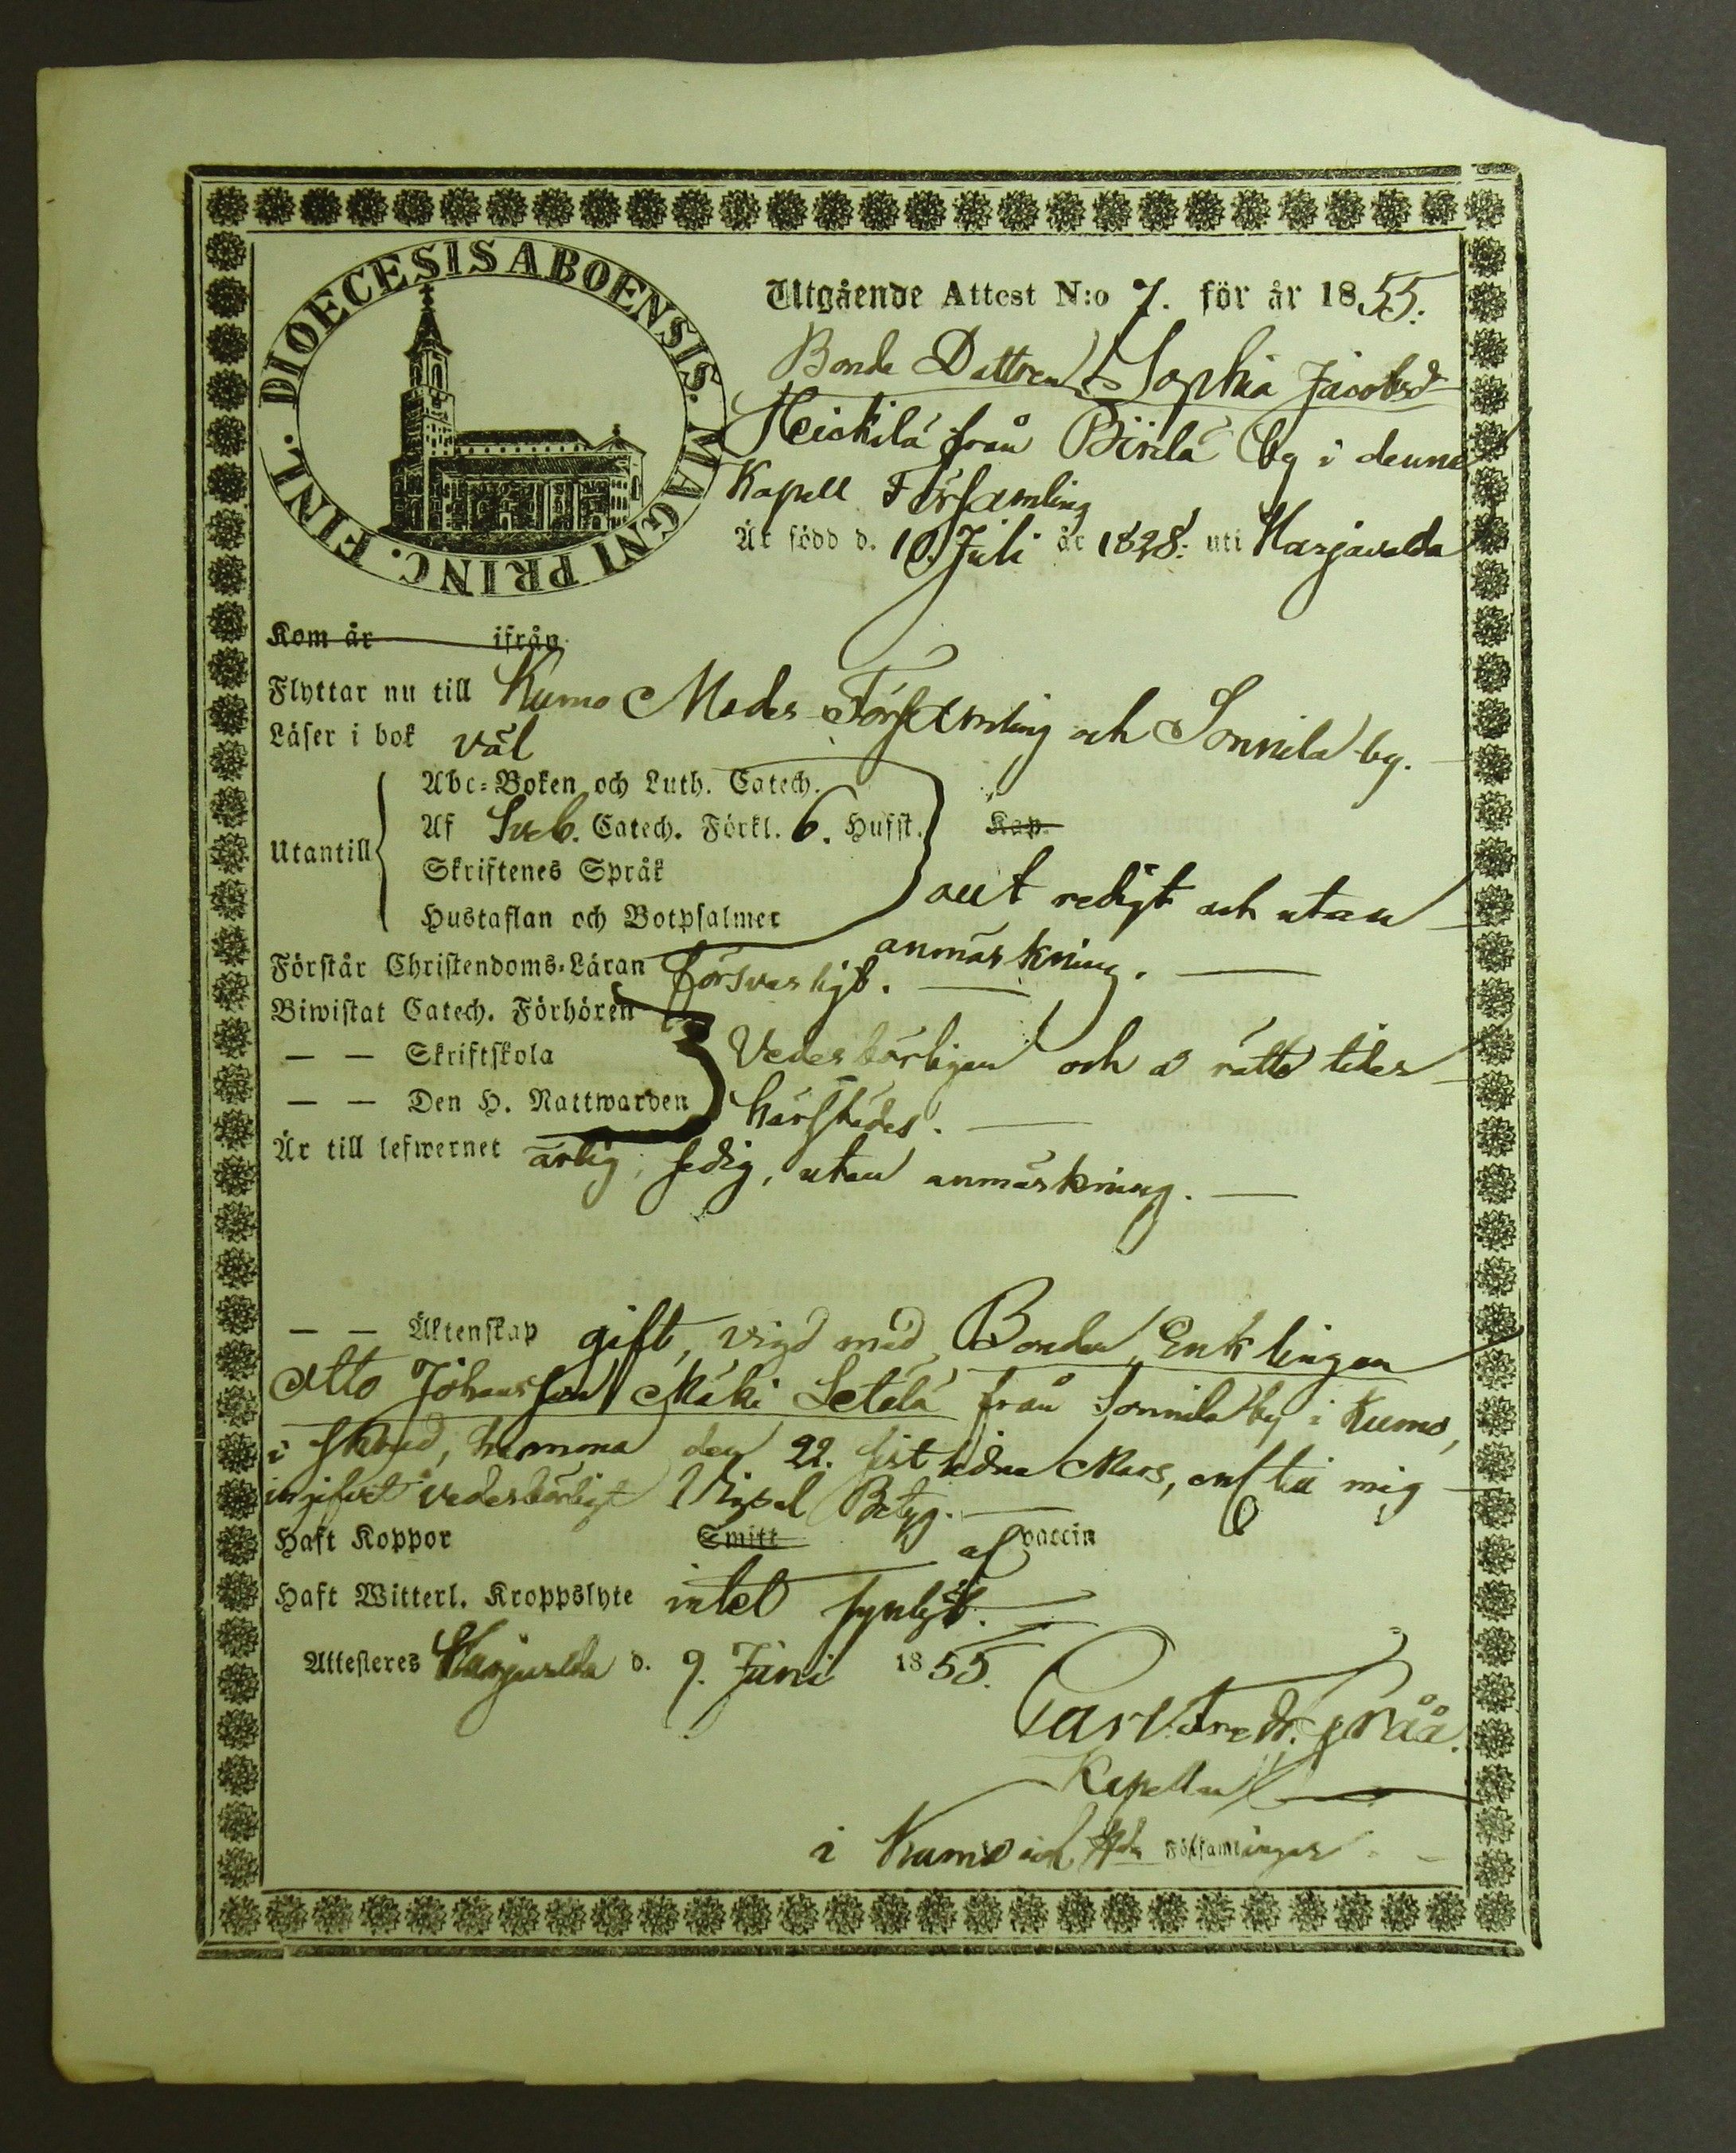 DIOECESIS ABOENSIS. MAGNI PRINC. FINL.
Utgående Attest N:o 7. för år 1855.
Bonde Dottren Sophia Jacobsd
Heickilä från Pirilä by i denne
Kapell Församling
Är född d. 10. Juli år 1828. uti Harjavalda
Kom år ifrån
Flyttar nu till Kumo Moder Församling och Sonnila by.
Läser i bok väl
Utantill
Abc-Boken och Luth. Catech.
Af Sveb. Catech. Förkl. 6. Hufst. Kap.
Skriftenes Språk
Hustaflan och Botpsalmer
allt redigt och utan
anmärkning.
Förstår Christendoms-Läran försvarligt.
Biwistat Catech. Förhören
— — Skriftskola
— — Den H. Nattwarden
Vederbörligen och å rätta tider
härstädes.
Är till lefwernet ärlig, sedig, utan anmärkning.
— — Äktenskap gift, vigd med Bonden Enklingen
Otto Johansson Mäki Setälä från Sonnila by i Kumo,
i hemma den 22. sistledne Mars, enl. till mig
ingifvet vederbörligt Vigsel Betyg.
Haft Koppor Smitt af vaccin
Haft Witterl. Kroppslyte intet synligt.
Attesteres Harjavalda d. 9. Juni 1855.
Carl Fredr. Gråå.
Kapellan
i Kumo och Församlingar